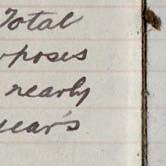 Total
rposes
nearly
year's